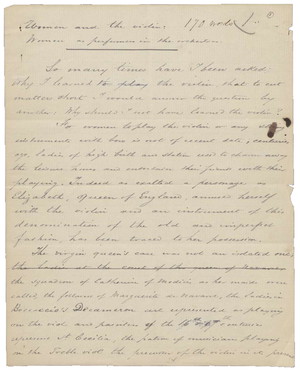 Women and the violin. 170 words
Women as performers in the orchestra
So many times have I been asked
why I learned to play the violin that to cut
matters short I would answer the question by
another. Why should I not have learned the violin?
For women to play the violin or any string
instrument with bow is not of recent date, centuries
ago, ladies of high birth and station used to charm away
the tedious hours and entertain their friends with their
playing. Indeed so exalted a personage as
Elizabeth, Queen of England, amused herself
with the violin and an instrument of this
denomination of the old and imperfect
fashion, has been traced to her possession.
The virgin queen's case was not an isolated one
the ladies at the court of the
the squadron of Catherine of Medicis as her maids were
called, the followers of Marguerite de Navarre, the ladies in
Boccaccio's Decameron are represented as playing
on the viol, and painters of the 16th century
St Cecilia, the patron of musicians playing